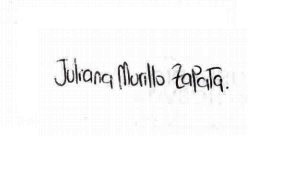 Juliana Murillo Zapata.